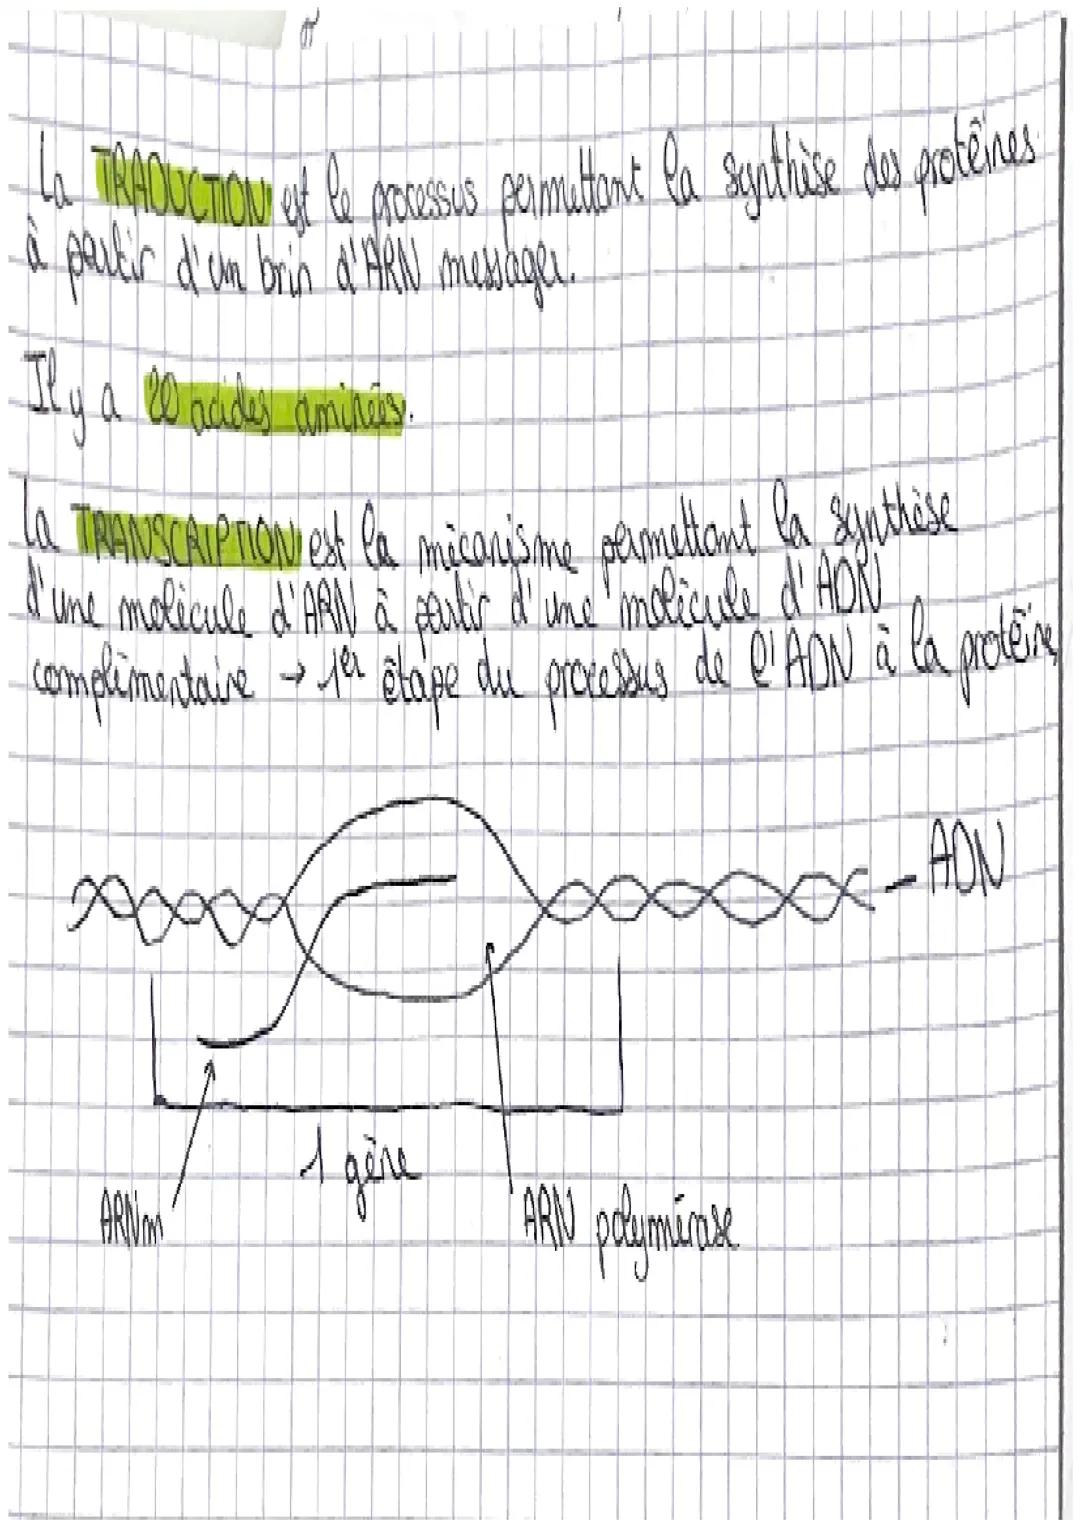 La TRADUCTION est le processus permettant la synthèse des protéines
à partir d'un brin d'ARN messager.
Il y a 20 acides aminées.
La TRANSCRIPTION est la mécanisme permettant la synthèse
d'une molécule d'ARN à partir d'une molécule d'ADN
complémentaire → 1er étape du processus de l'ADN à la protéine
ADN
1 gène
ARNm
ARN polymérase